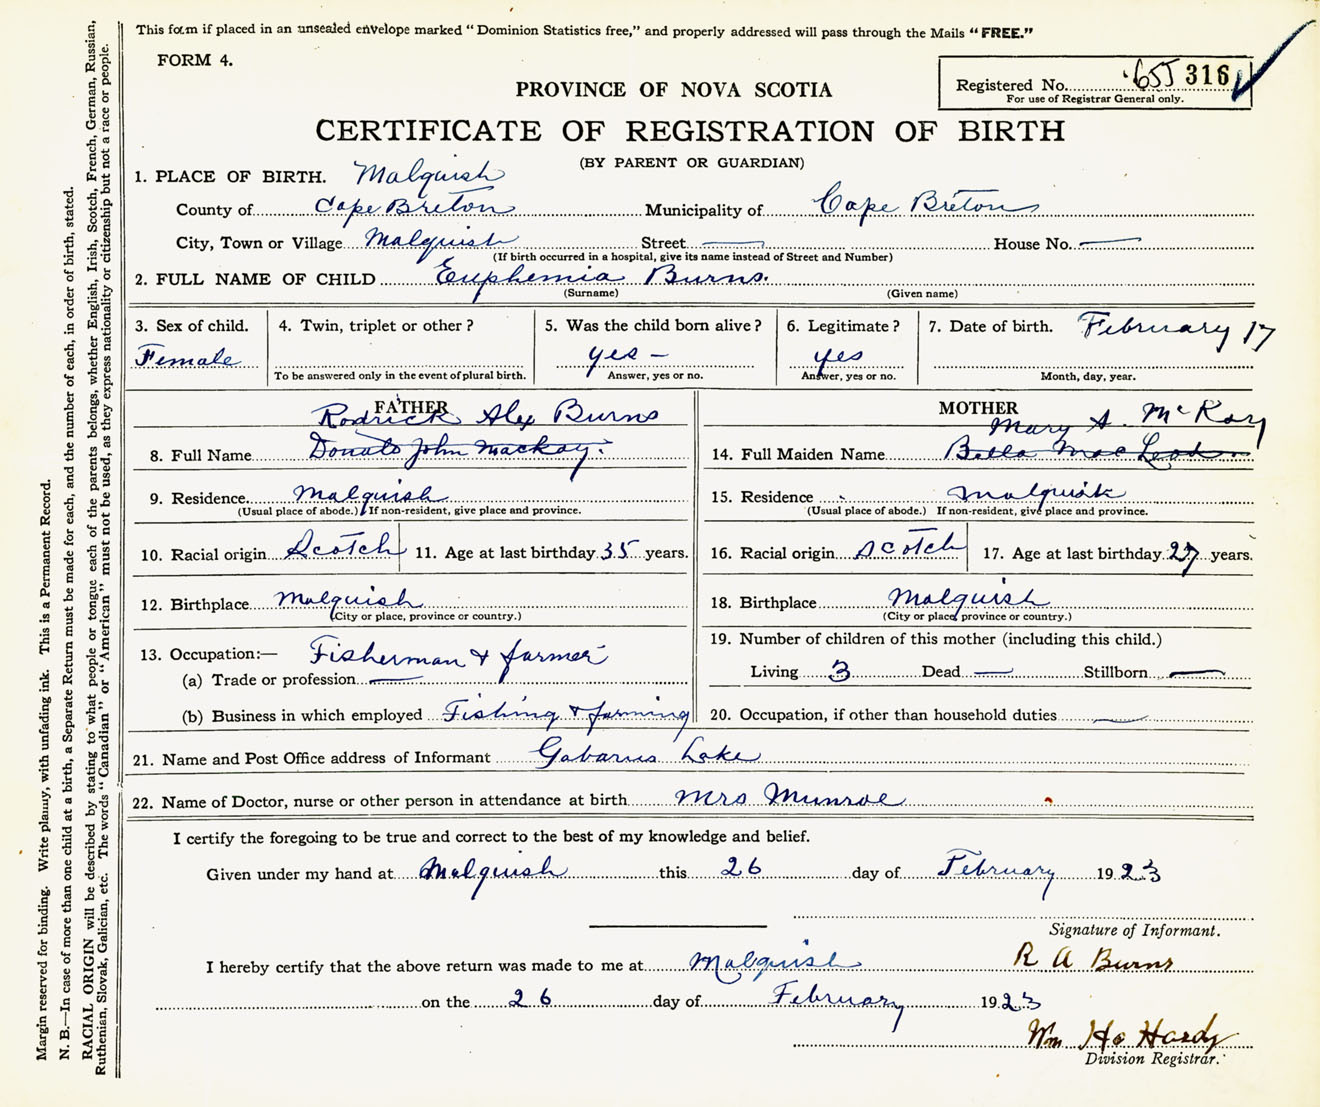 This form if placed in an unsealed envelope marked "Dominion Statistics free," and properly addressed will pass through the Mails "FREE."
FORM 4.
Registered No. 655 316
For use of Registrar General only.
PROVINCE OF NOVA SCOTIA
CERTIFICATE OF REGISTRATION OF BIRTH
(BY PARENT OR GUARDIAN)
1. PLACE OF BIRTH. Malquish
County of Cape Breton Municipality of Cape Breton
City, Town or Village Malquish Street — House No. —
(If birth occurred in a hospital, give its name instead of Street and Number)
2. FULL NAME OF CHILD Euphemia Burns.
(Surname) (Given name)
3. Sex of child. 4. Twin, triplet or other? 5. Was the child born alive? 6. Legitimate? 7. Date of birth. February 17
Female yes – yes
To be answered only in the event of plural birth. Answer, yes or no. Answer, yes or no. Month, day, year.
FATHER MOTHER
Rodrick Alex Burns Mary A. McKay
8. Full Name Donald John Mackay. 14. Full Maiden Name Bella Mac Leod
9. Residence. Malquish 15. Residence Malquish
(Usual place of abode.) If non-resident, give place and province. (Usual place of abode.) If non-resident, give place and province.
10. Racial origin Scotch 11. Age at last birthday 35 years. 16. Racial origin Scotch 17. Age at last birthday 27 years.
12. Birthplace Malquish 18. Birthplace Malquish
(City or place, province or country.) (City or place, province or country.)
13. Occupation:— Fisherman & farmer 19. Number of children of this mother (including this child.)
(a) Trade or profession — Living 3 Dead — Stillborn —
(b) Business in which employed Fishing & farming 20. Occupation, if other than household duties —
21. Name and Post Office address of Informant Gabarus Lake
22. Name of Doctor, nurse or other person in attendance at birth Mrs Munroe
I certify the foregoing to be true and correct to the best of my knowledge and belief.
Given under my hand at Malquish this 26 day of February 1923
Signature of Informant.
I hereby certify that the above return was made to me at Malquish R A Burns
on the 26 day of February 1923
Wm Ho Hardy
Division Registrar.
Margin reserved for binding. Write plainly, with unfading ink. This is a Permanent Record.
N. B.—In case of more than one child at a birth, a Separate Return must be made for each, and the number of each, in order of birth, stated.
RACIAL ORIGIN will be described by stating to what people or tongue each of the parents belongs, whether English, Irish, Scotch, French, German, Russian,
Ruthenian, Slovak, Galician, etc. The words "Canadian" or "American" must not be used, as they express nationality or citizenship but not a race or people.